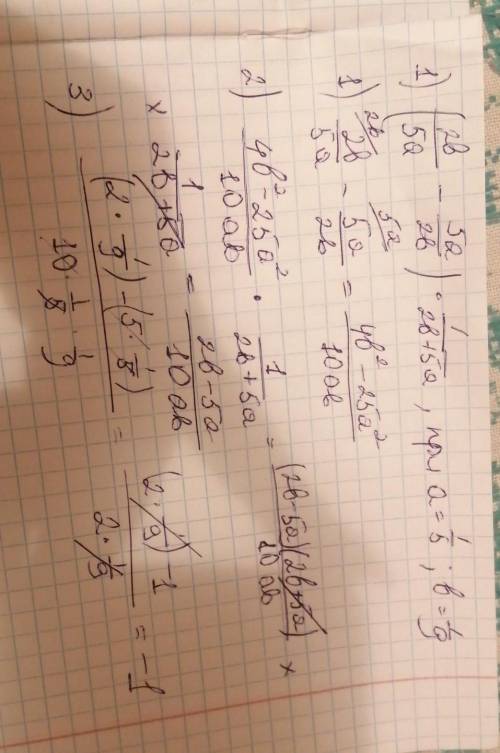 1) (2b/5a − 5a/2b) · 1/(2b+5a), при a = 1/5 ; b = 1/9
1) 2b/5a − 5a/2b = (4b² − 25a²)/10ab
2) (4b² − 25a²)/10ab · 1/(2b+5a) = (2b−5a)(2b+5a)/10ab ×
× 1/(2b+5a) = (2b−5a)/10ab
3) ((2 · 1/9) − (5 · 1/5))/(10 · 1/5 · 1/9) = ((2 · 1/9) − 1)/(2 · 1/9) = −1